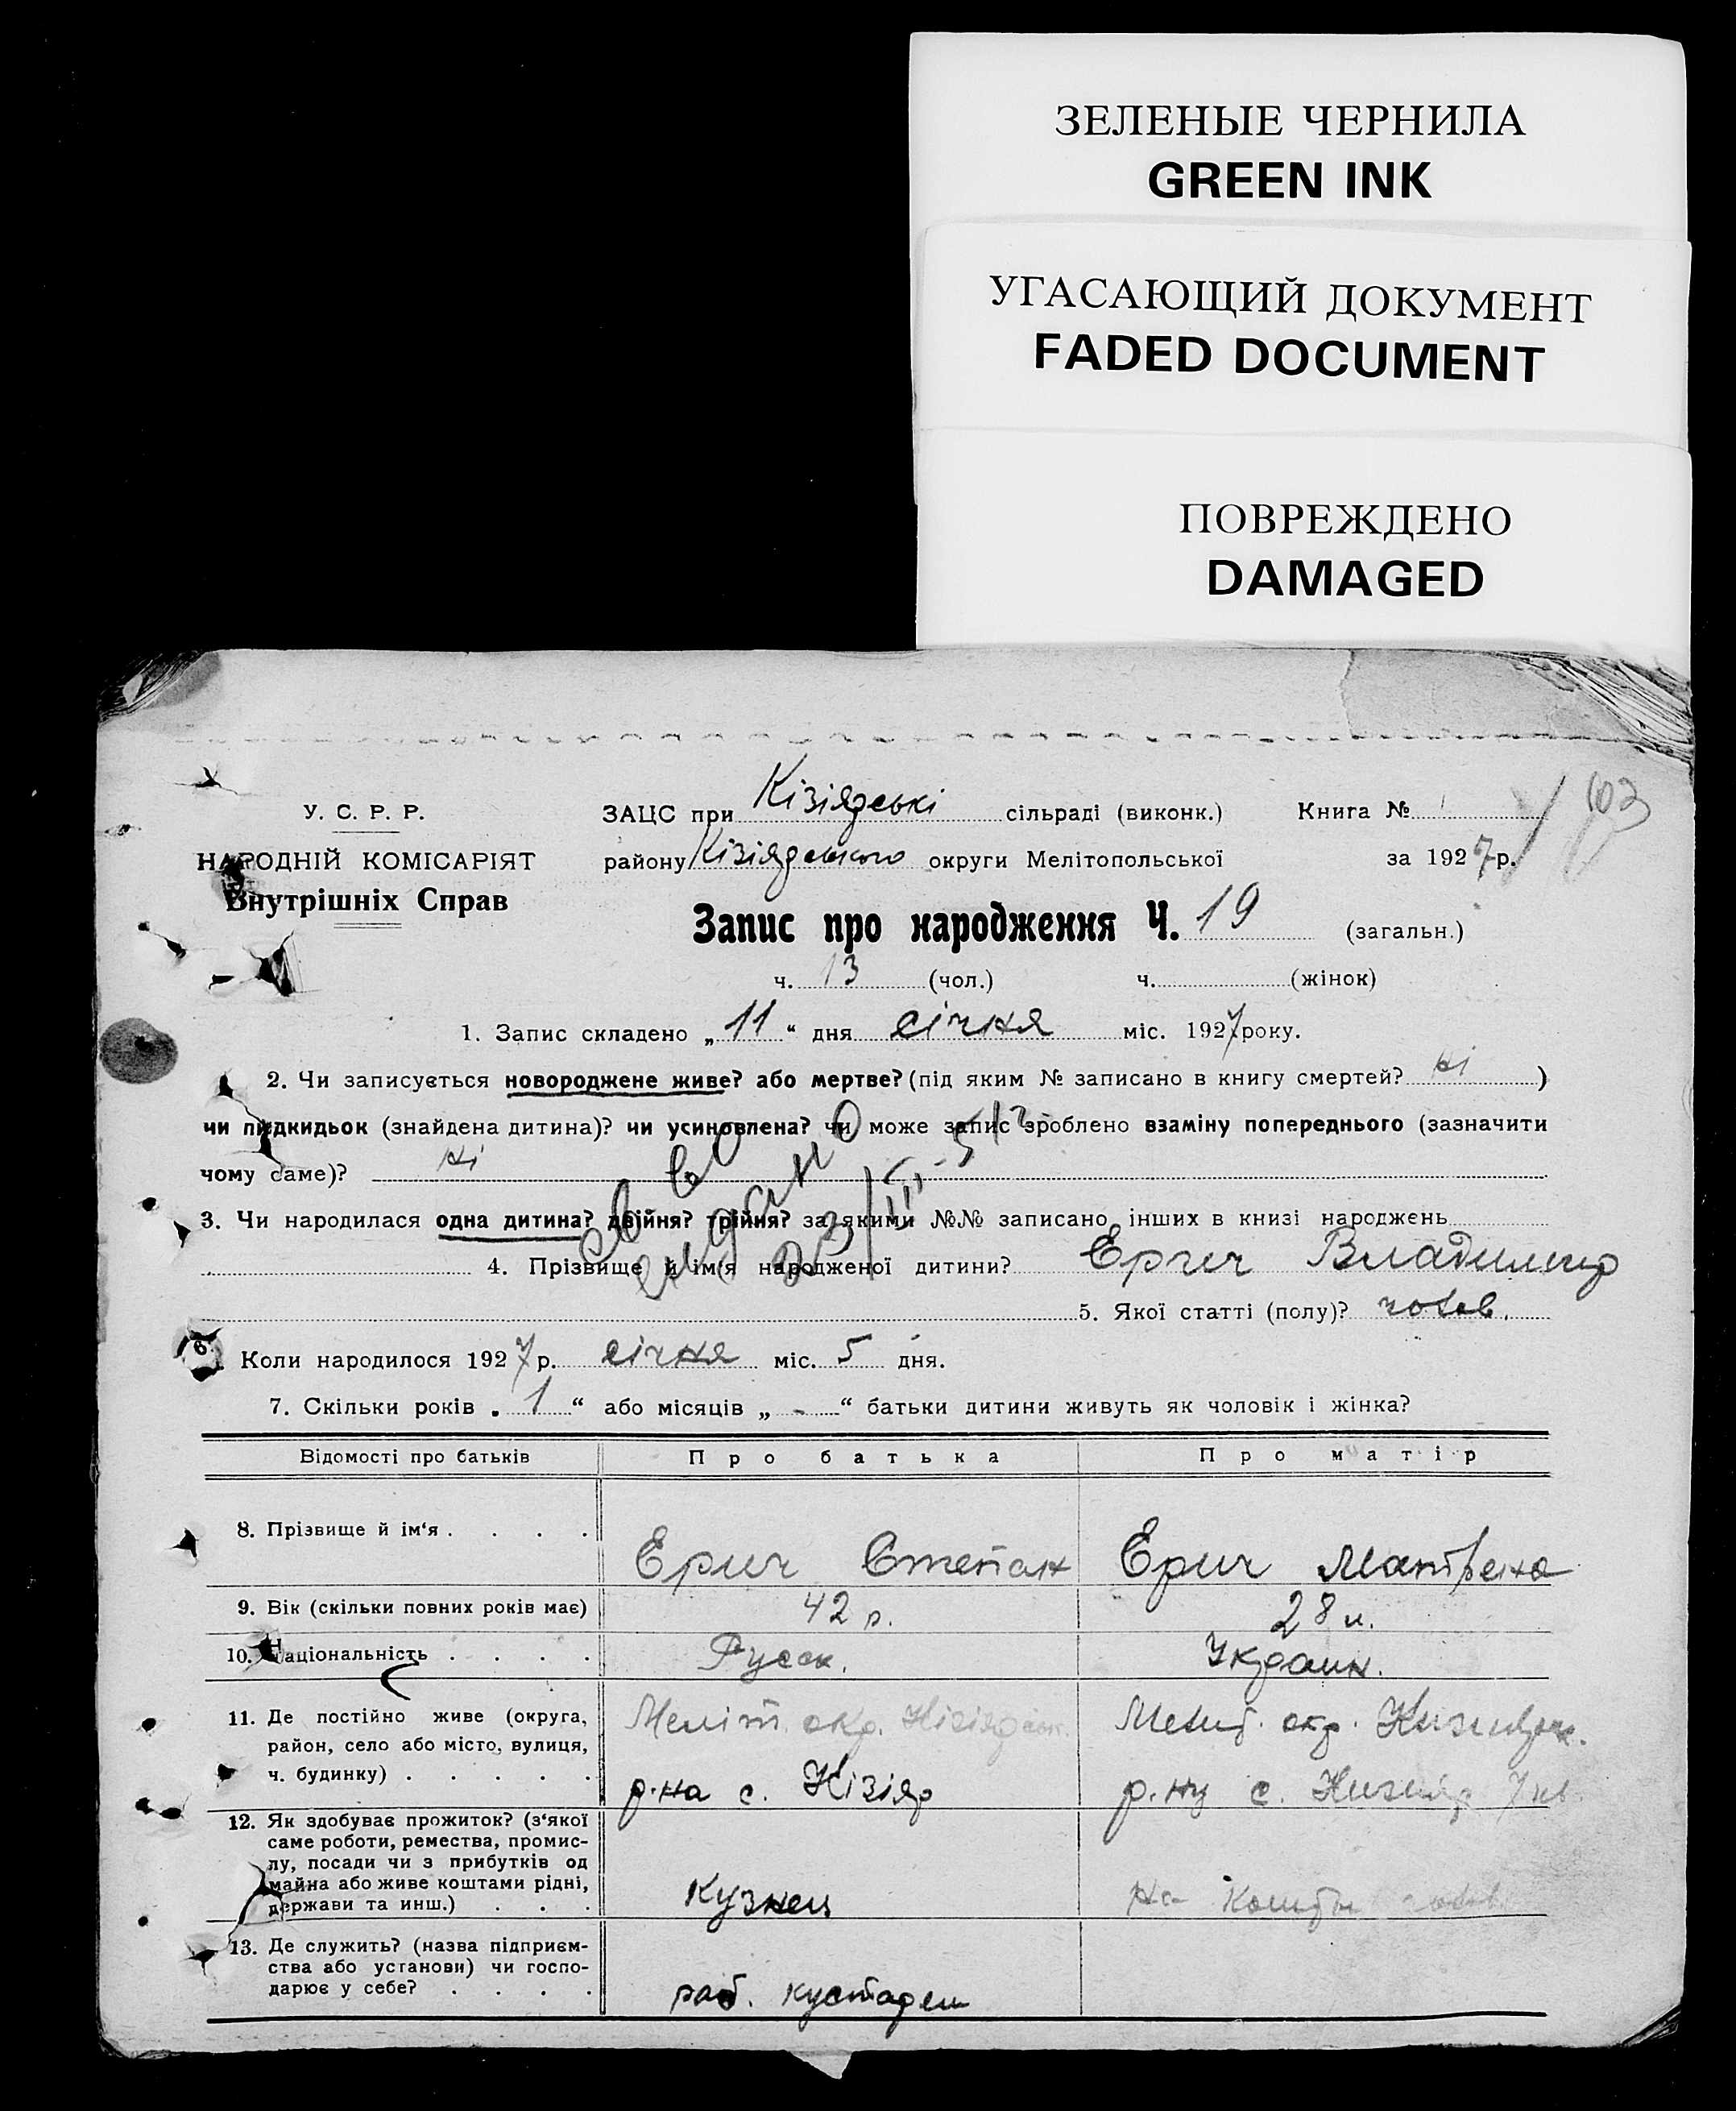 ЗЕЛЕНЫЕ ЧЕРНИЛА
GREEN INK
УГАСАЮЩИЙ ДОКУМЕНТ
FADED DOCUMENT
ПОВРЕЖДЕНО
DAMAGED
У. С. Р. Р.
НАРОДНІЙ КОМІСАРІЯТ
Внутрішніх Справ
ЗАЦС при Кізіярські сільраді (виконк.) Книга № 1
району Кізіярського округи Мелітопольської за 1927 р.
103
Запис про народження Ч. 19 (загальн.)
ч. 13 (чол.) ч. (жінок)
1. Запис складено „11“ дня січня міс. 1927 року.
2. Чи записується новороджене живе? або мертве? (під яким № записано в книгу смертей? ні )
чи підкидьок (знайдена дитина)? чи усиновлена? чи може запис зроблено взаміну попереднього (зазначити
чому саме)? ні
св во
выдано
23/III-51г
3. Чи народилася одна дитина? двійня? трійня? за якими №№ записано інших в книзі народжень
4. Прізвище й ім‘я народженої дитини? Ерич Владимир
5. Якої статті (полу)? чолов.
6. Коли народилося 1927 р. січня міс. 5 дня.
7. Скільки років „1“ або місяців „-“ батьки дитини живуть як чоловік і жінка?
Відомості про батьків Про батька Про матір
8. Прізвище й ім‘я . . . . Ерич Степан Ерич Матрена
9. Вік (скільки повних років має) 42 р. 28 л.
10. Національність . . . . Русск. Украин.
11. Де постійно живе (округа,
район, село або місто, вулиця,
ч. будинку) . . . . .
Меліт. окр. Кізіярськ.
р-на с. Кізіяр
Мелит. окр. Кизиярск.
р-ну с. Кизияр
12. Як здобуває прожиток? (з‘якої
саме роботи, ремества, промис-
лу, посади чи з прибутків од
майна або живе коштами рідні,
держави та инш.) . . .
Кузнец
На кошты
13. Де служить? (назва підприєм-
ства або установи) чи госпо-
дарює у себе? . . . .
раб. кустарем